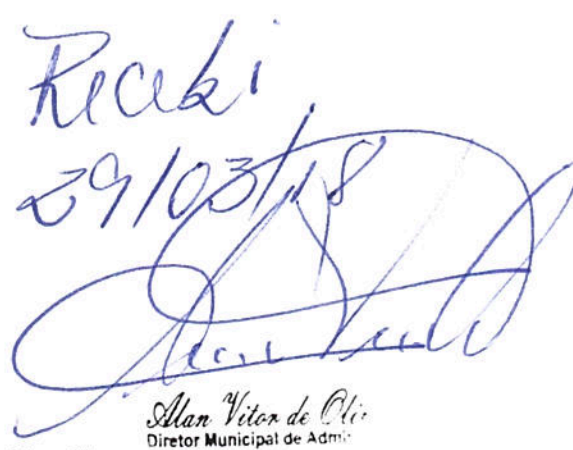 Recebi
29/03/18
Alan Vitor de Oli
Diretor Municipal de Admi